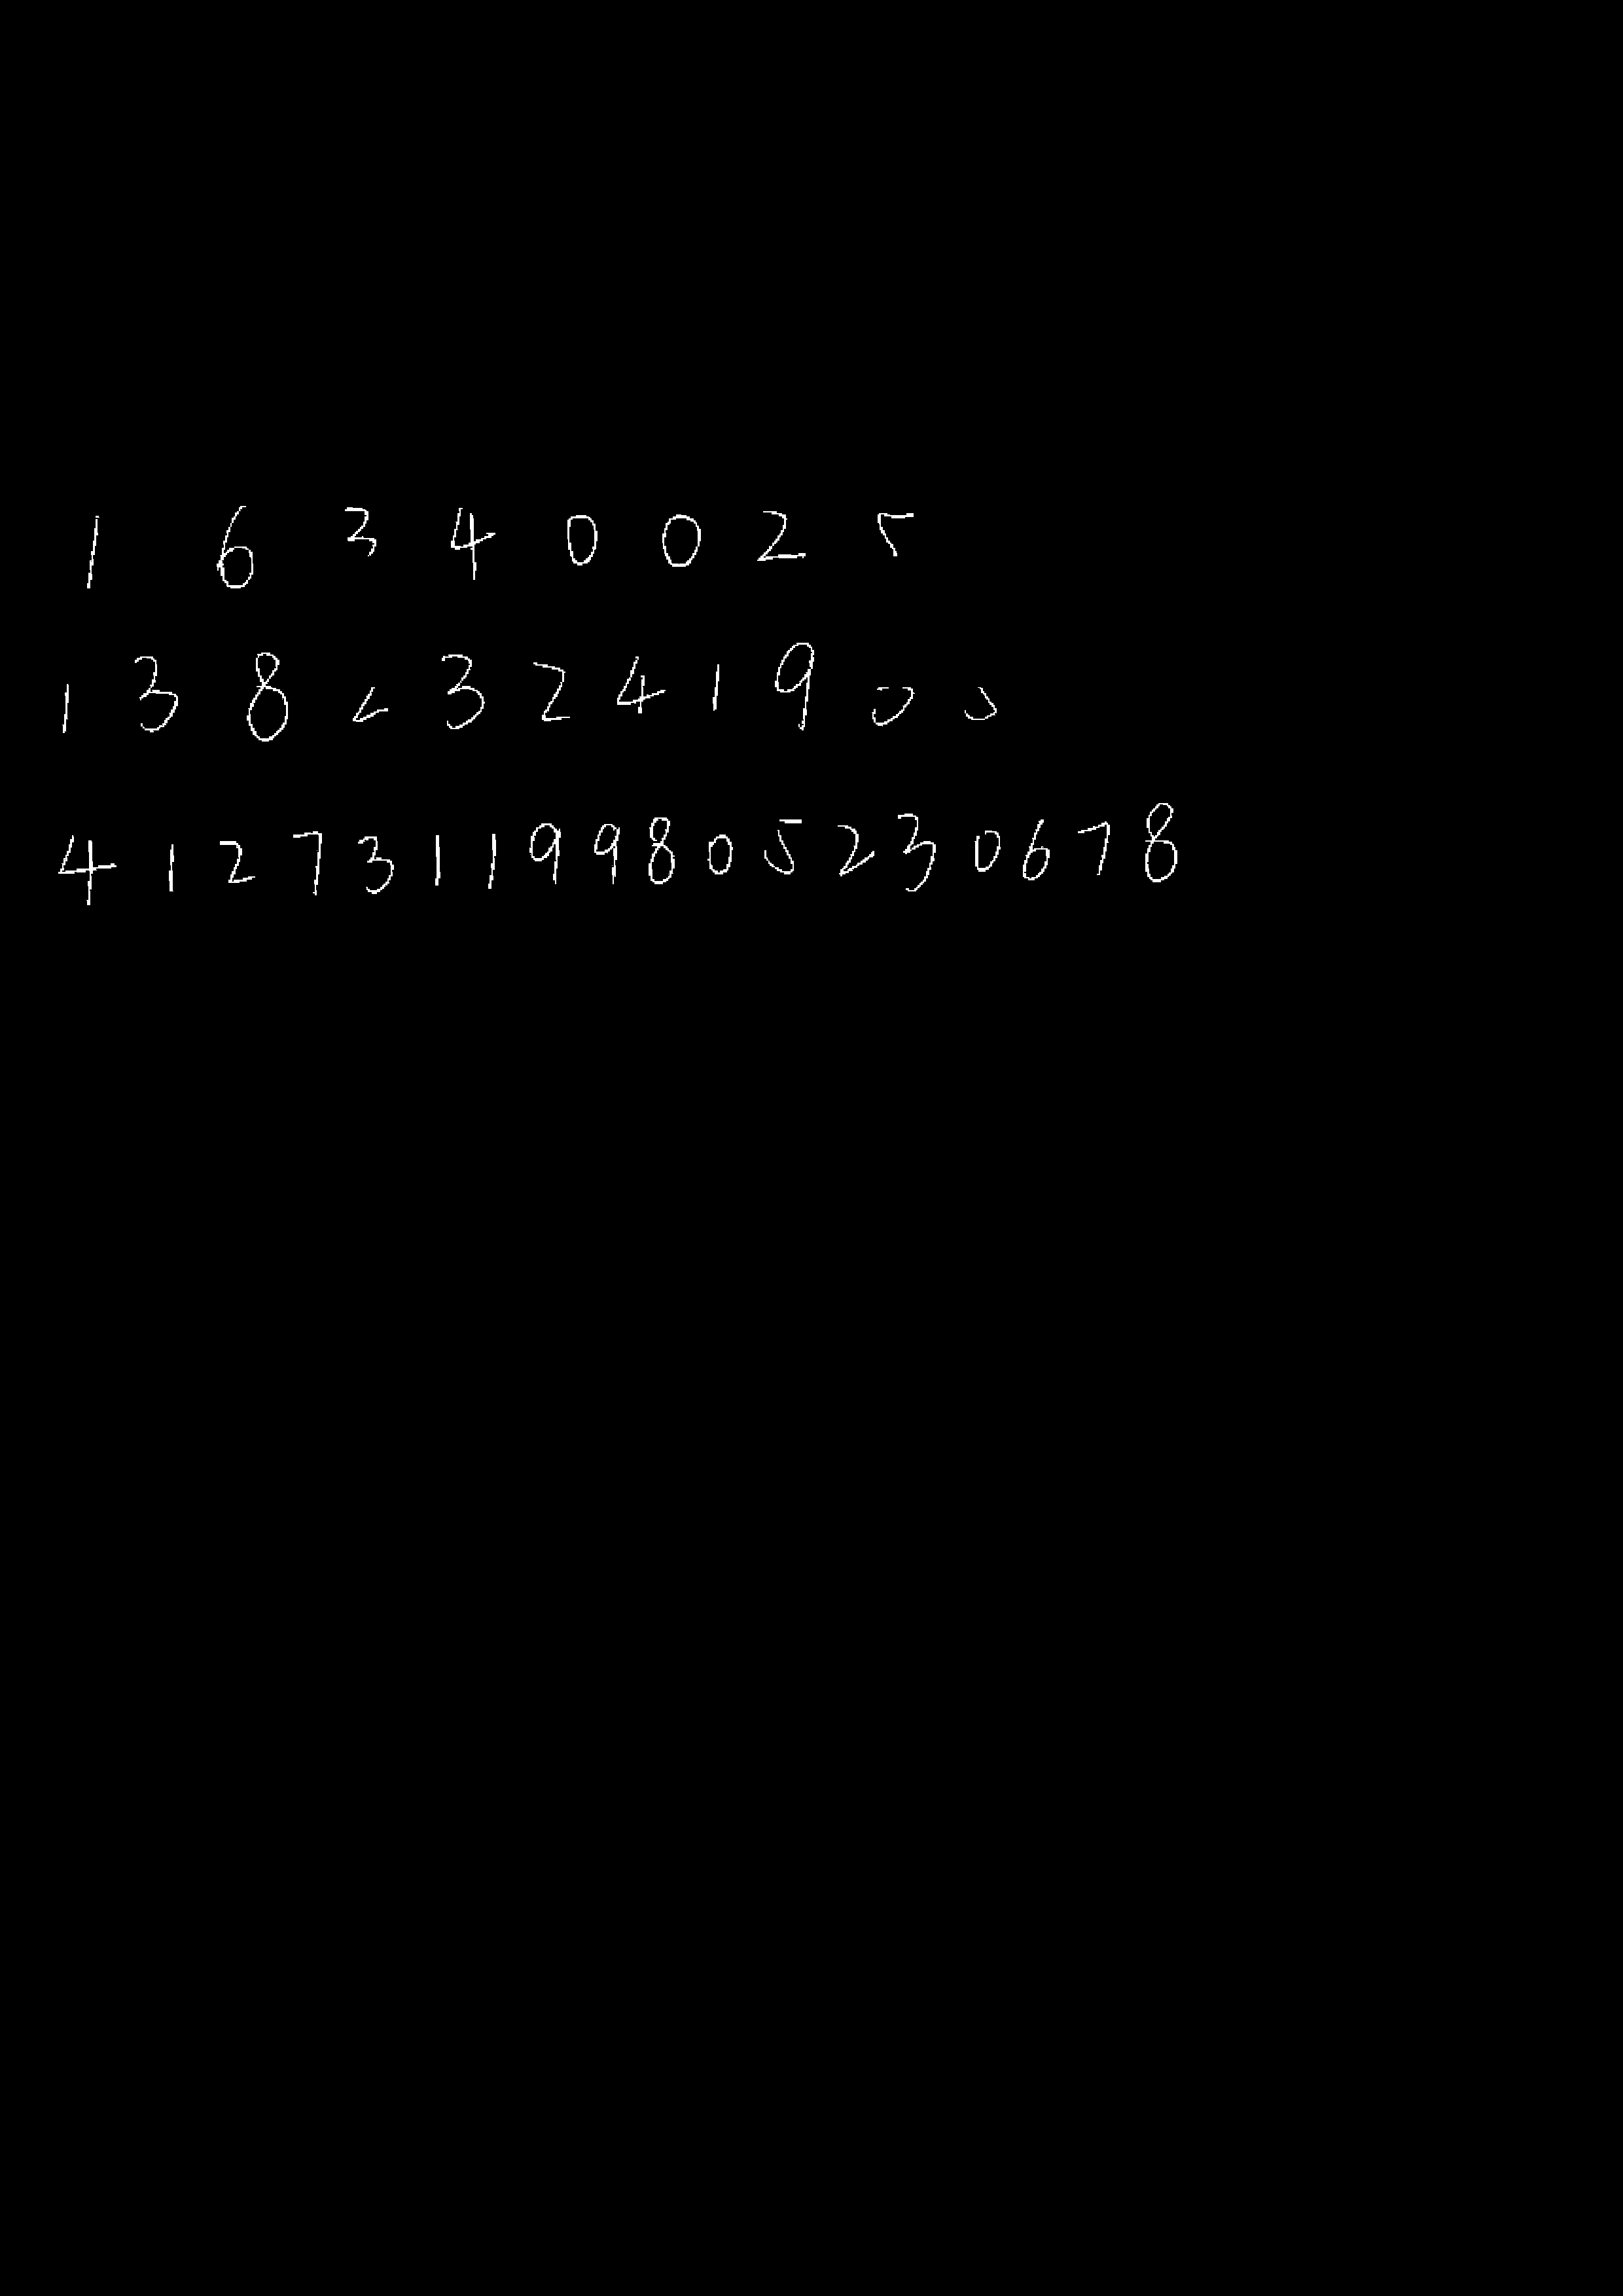 1 6 3 4 0 0 2 5
1 3 8 2 3 2 4 1 9 0 0
4 1 2 7 3 1 1 9 9 8 0 5 2 3 0 6 7 8